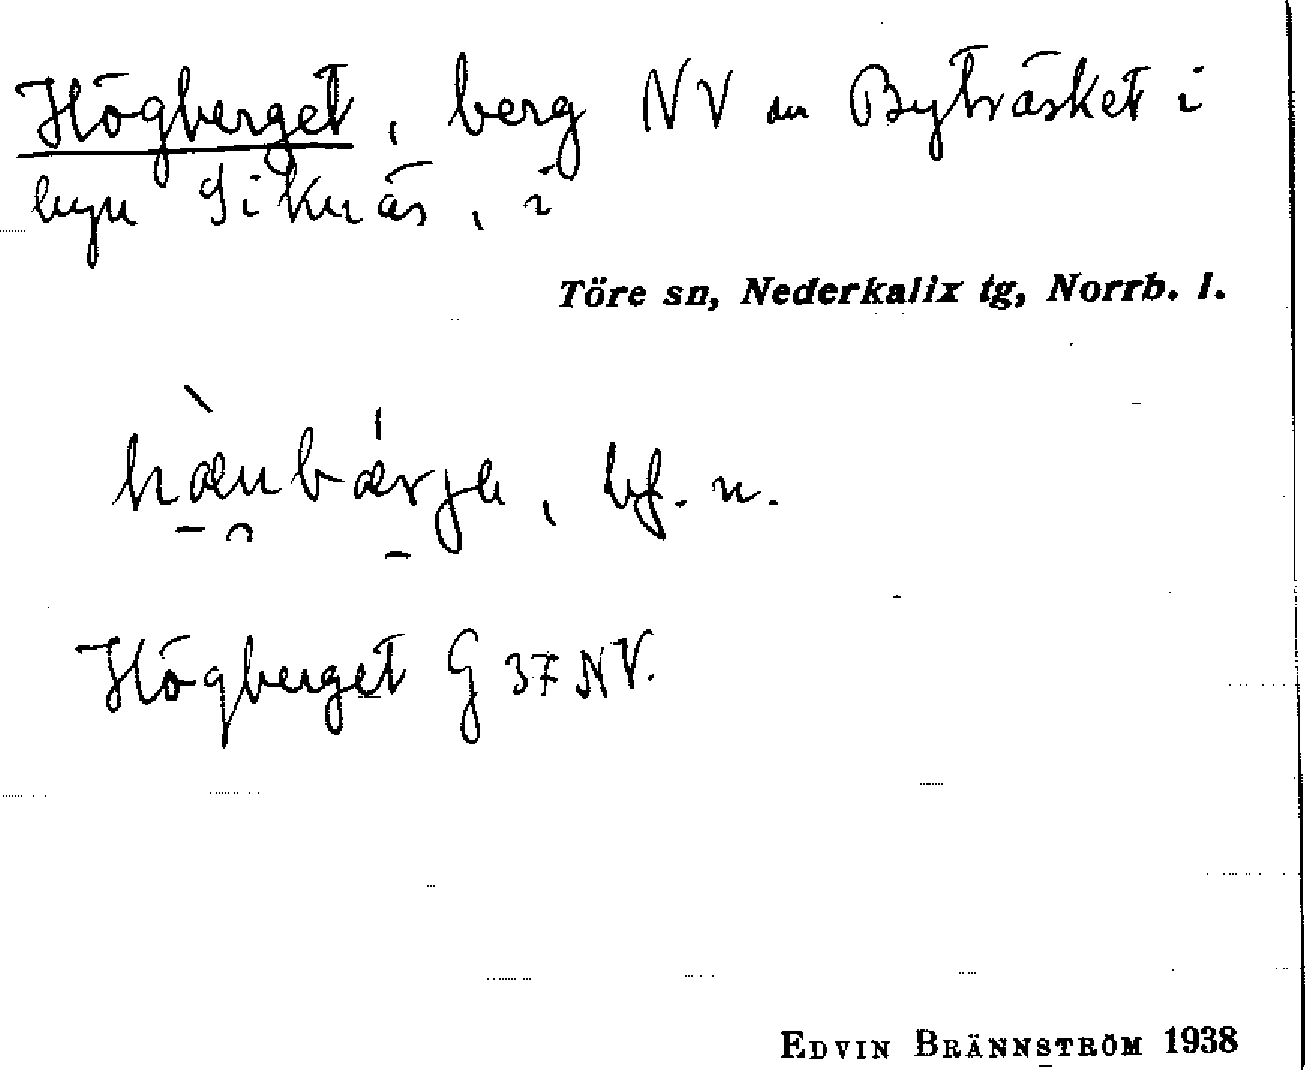 Högberget, berg NV om Byträsket i
byn Siknäs, i
Töre sn, Nederkalix tg, Norrb. l.
bf. n.
Högberget G 37 NV.
EDVIN BRÄNNSTRÖM 1938